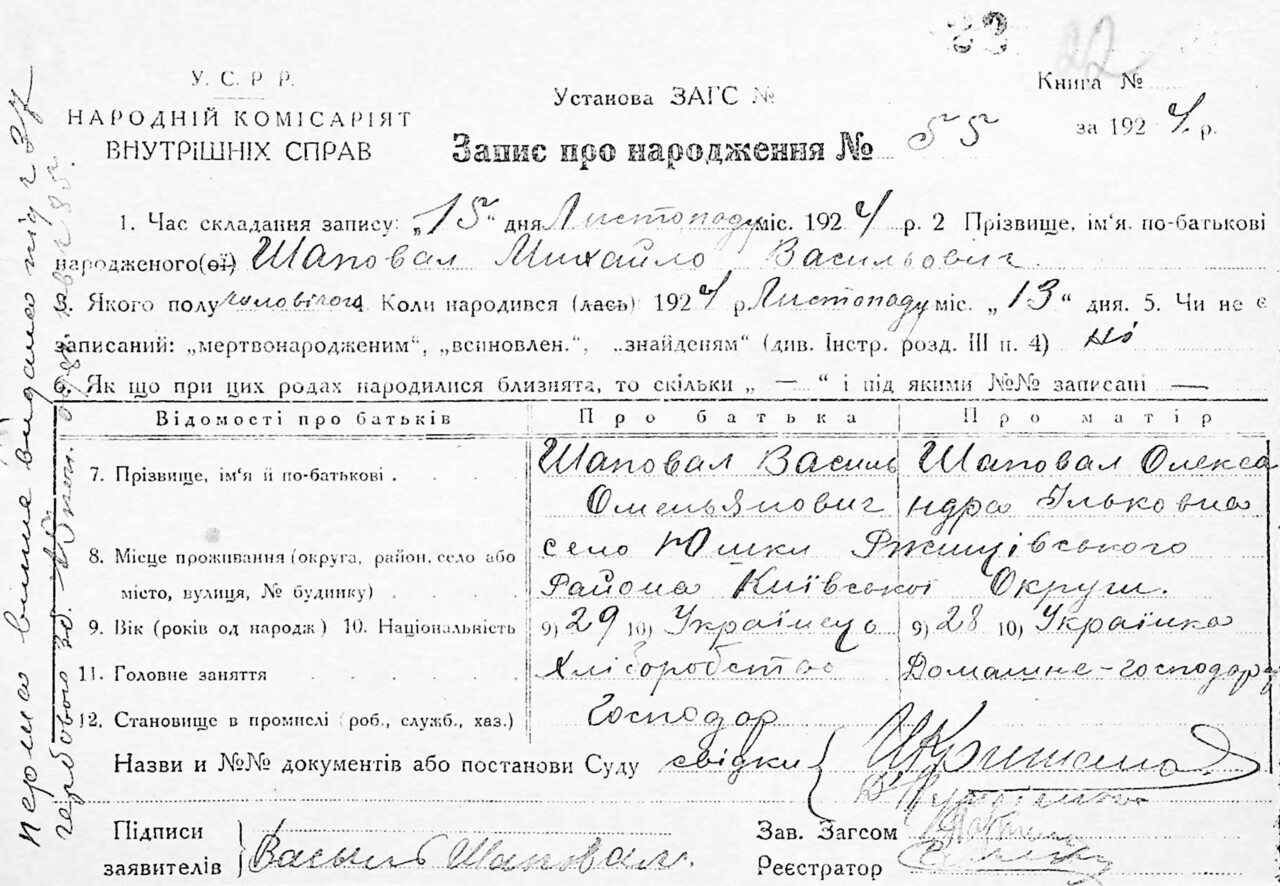 33 22
У. С. Р. Р.
НАРОДНІЙ КОМІСАРІЯТ
ВНУТРІШНІХ СПРАВ
Установа ЗАГС №
Книга №
за 1924 р.
Запис про народження № 55
1. Час складання запису: „15“ дня Листопаду міс. 1924 р. 2 Прізвище, ім'я, по-батькові
народженого(ої) Шаповал Михайло Васильович
3. Якого полу чоловічого 4. Коли народився (лась) 1924 р. Листопаду міс. „13“ дня. 5. Чи не є
записаний: „мертвонародженим“, „всиновлен.“, „знайденям“ (див. Інстр. розд. III п. 4) ні
6. Як що при цих родах народилися близнята, то скільки „ — “ і під якими №№ записані —
Відомості про батьків Про батька Про матір
7. Прізвище, ім'я й по-батькові . Шаповал Василь Омельянович Шаповал Олександра Ільковна
8. Місце проживання (округа, район, село або село Юшки Ржищівського
місто, вулиця, № будинку) Района Київської Округи.
9. Вік (років од народж) 10. Національність 9) 29 10) Українець 9) 28 10) Українка
11. Головне заняття Хліборобство Домашне-господар
12. Становище в промислі (роб., служб., хаз.) Господар
Назви и №№ документів або постанови Суду свідки
Підписи
заявителів Василь Шаповал.
Зав. Загсом
Реєстратор
перша випис видано під
гербового зб.